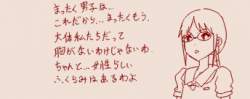 まったく男子は…
これだから…まったくもう.
大体私たちだって
胸がないわけじゃないわ.
ちゃんと…女性らしい
ふくらみはあるわよ